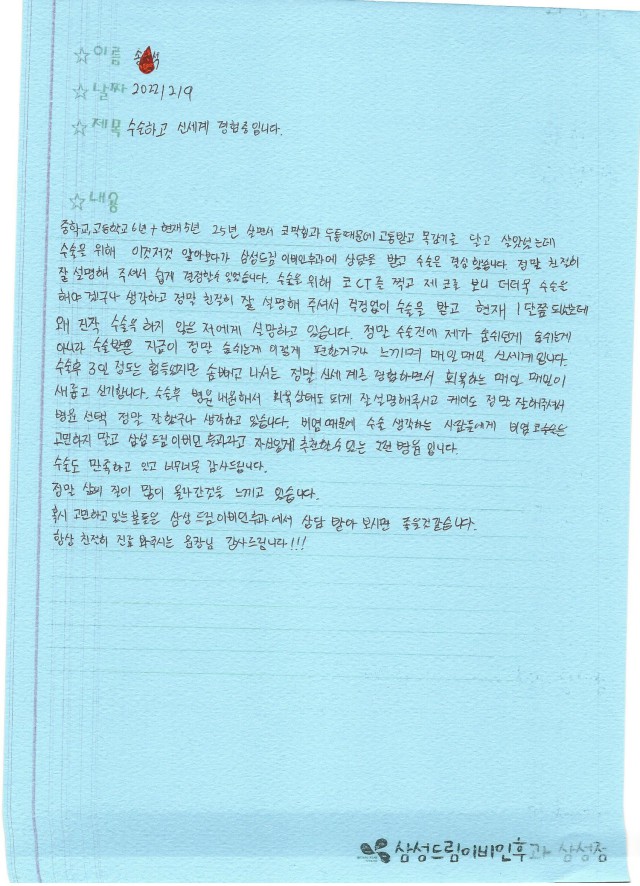 ☆이름 송 석
☆날짜 2022/2/9
☆제목 수술하고 신세계 경험중입니다.
☆내용
중학교,고등학교 6년 + 현재 5년 25년 살면서 코막힘과 두통때문에 고통받고 목감기를 달고 살았었는데
수술을 위해 이것저것 알아보다가 삼성드림이비인후과에 상담을 받고 수술을 결심했습니다. 정말 친절히
잘 설명해 주셔서 쉽게 결정할수 있었습니다. 수술을 위해 코CT를 찍고 제 코를 보니 더더욱 수술은
해야겠구나 생각하고 정말 친절히 잘 설명해 주셔서 걱정없이 수술을 받고 현재 1달쯤 되었는데
왜 진작 수술을 하지 않은 저에게 실망하고 있습니다. 정말 수술전에 제가 숨쉬던게 숨쉬는게
아니라 수술받은 지금이 정말 숨쉬는게 이렇게 편한거구나 느끼며 매일매일 신세계입니다.
수술후 3일 정도는 힘들었지만 솜빼고 나서는 정말 신세계를 경험하면서 회복하는 매일 매일이
새롭고 신기합니다. 수술후 병원 내원해서 회복상태도 되게 잘설명해주시고 케어도 정말 잘해주셔서
병원 선택 정말 잘했구나 생각하고 있습니다. 비염때문에 수술 생각하는 사람들에게 비염 코수술은
고민하지 말고 삼성드림이비인후과라고 자신있게 추천할수 있는 그런 병원입니다.
수술도 만족하고 있고 너무너무 감사드립니다.
정말 삶의 질이 많이 올라간것을 느끼고 있습니다.
혹시 고민하고 있는분들은 삼성드림이비인후과에서 상담 받아 보시면 좋을것같습니다.
항상 친절히 진료 봐주시는 원장님 감사드립니다!!!
삼성드림이비인후과 삼성점